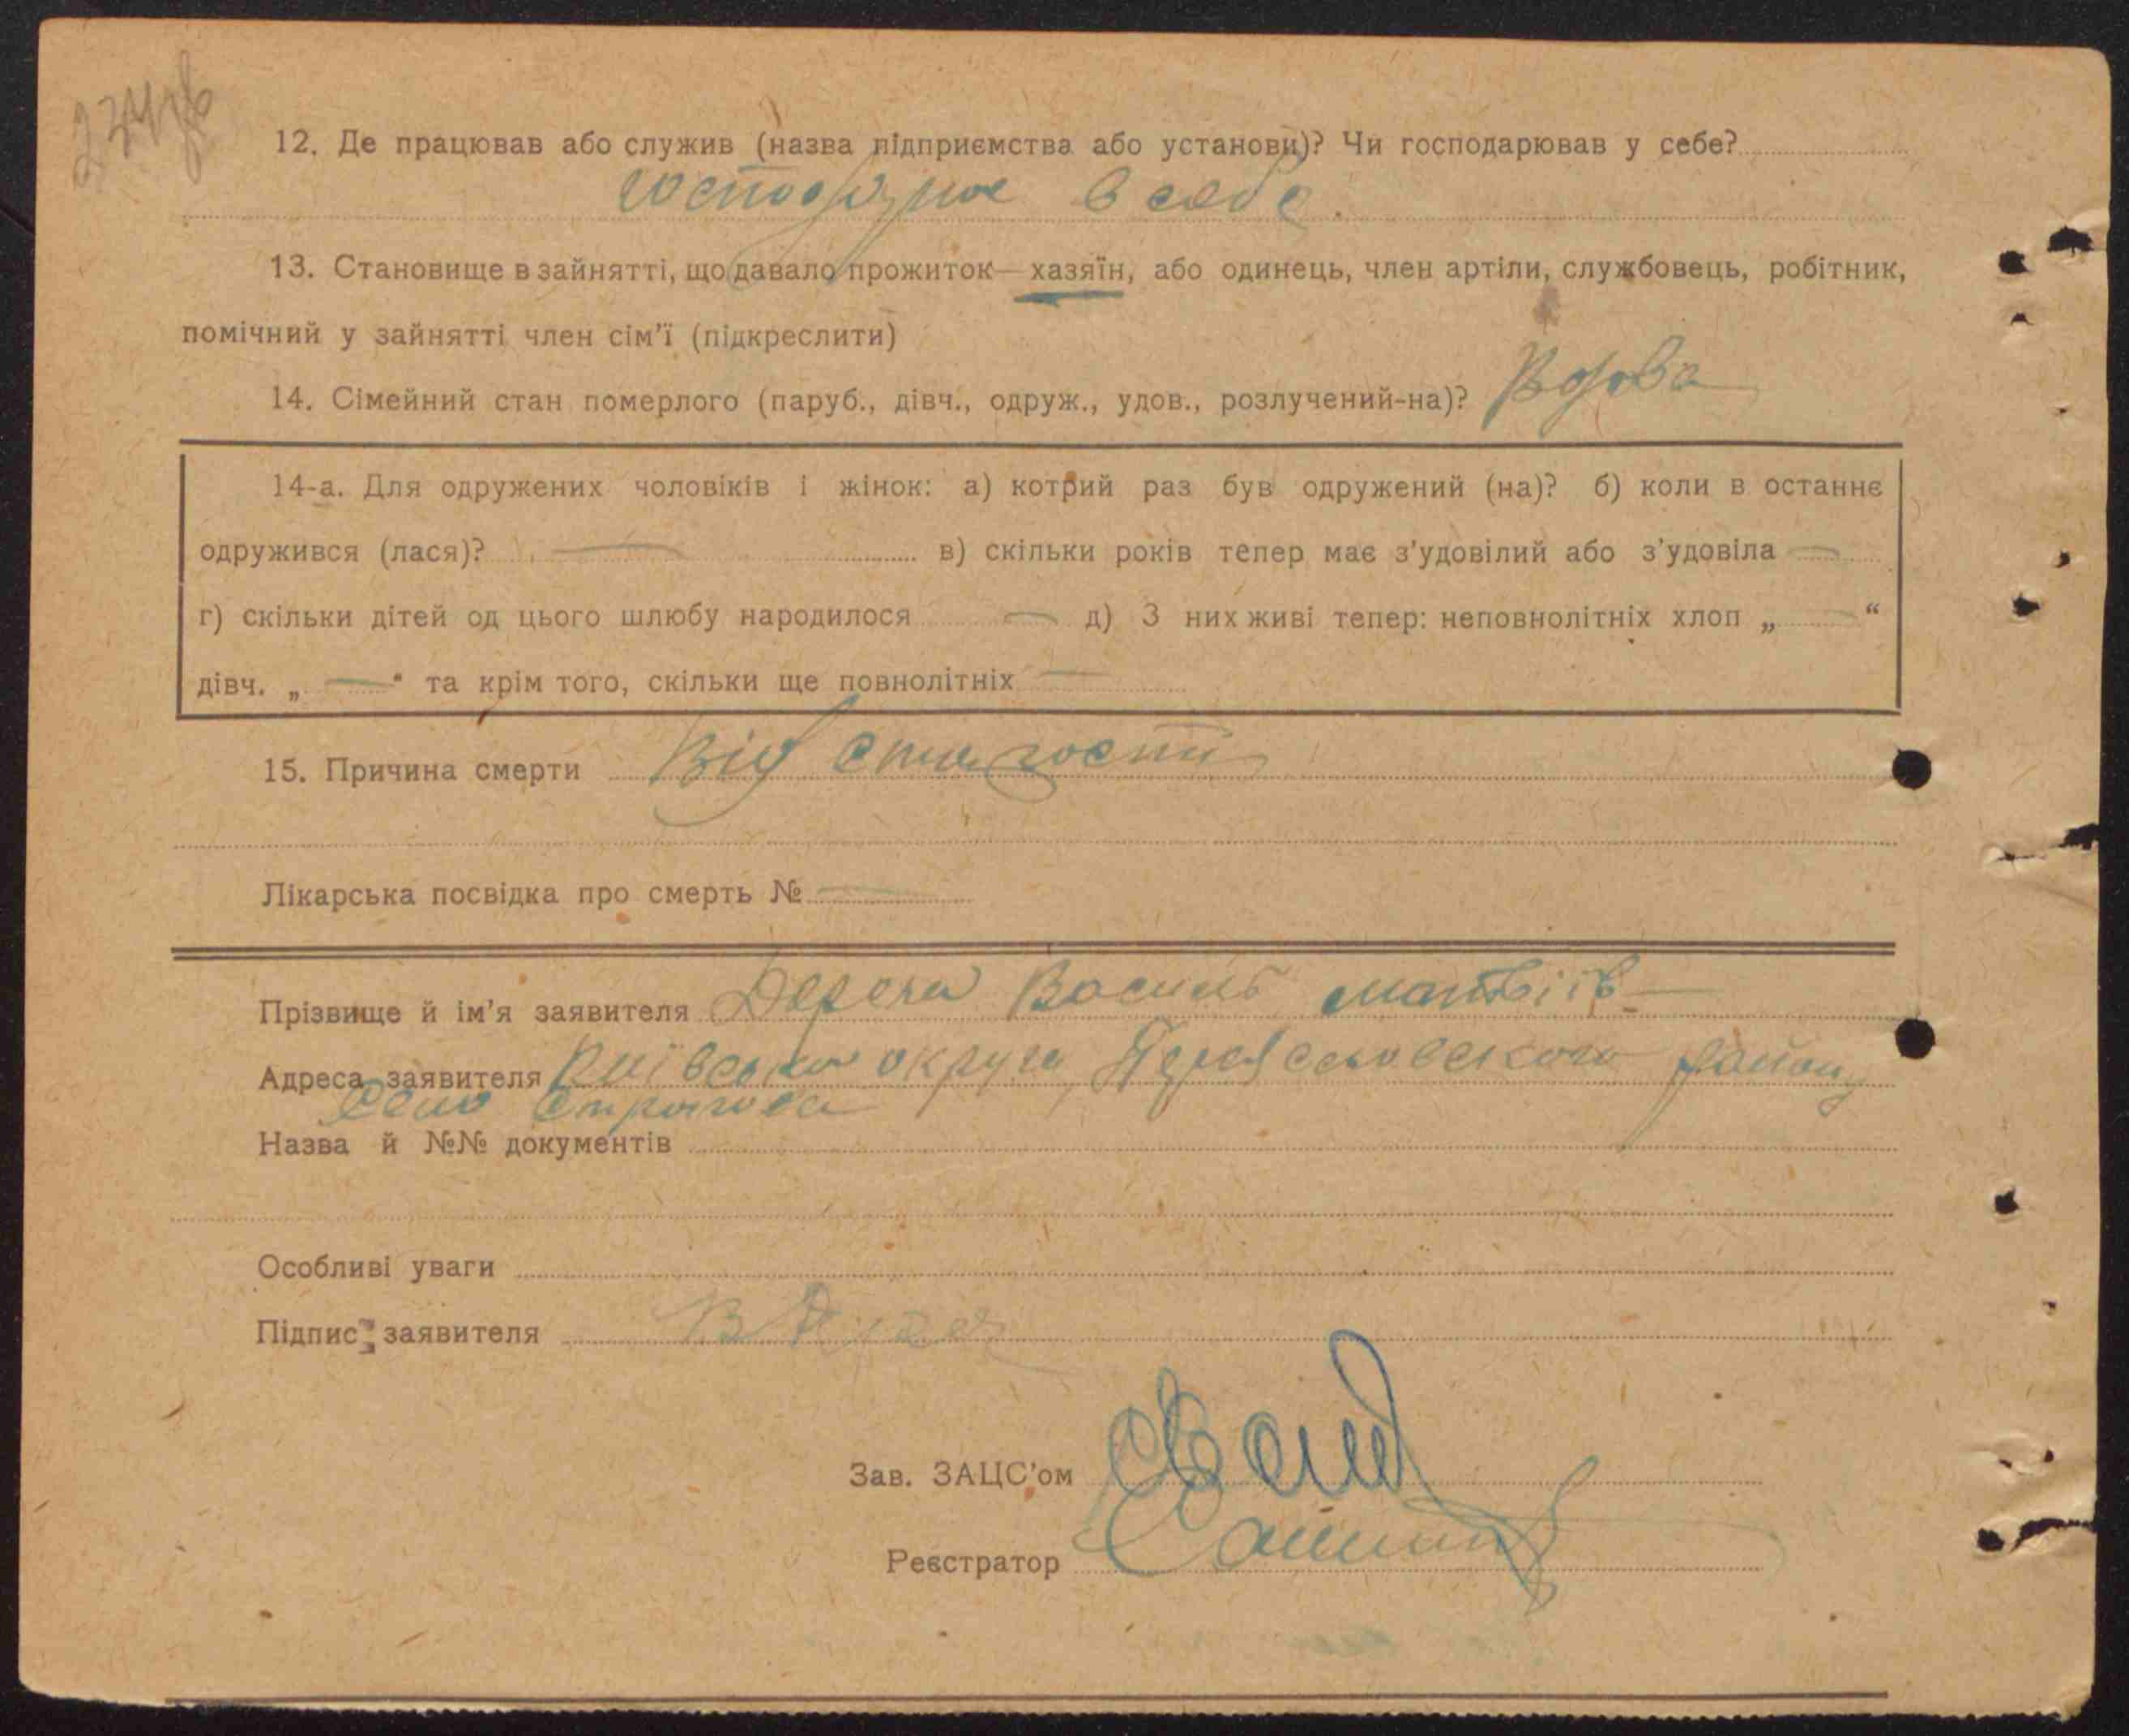 12. Де працював або служив (назва підприємства або установи)? Чи господарював у себе?
господарює в себе.
13. Становище в зайнятті, що давало прожиток—хазяїн, або одинець, член артіли, службовець, робітник,
помічний у зайнятті член сім'ї (підкреслити)
14. Сімейний стан померлого (паруб., дівч., одруж., удов., розлучений-на)? Вдова
14-а. Для одружених чоловіків і жінок: а) котрий раз був одружений (на)? б) коли в останнє
одружився (лася)? — в) скільки років тепер має з'удовілий або з'удовіла —
г) скільки дітей од цього шлюбу народилося — д) З них живі тепер: неповнолітніх хлоп „ — “
дівч. „ — “ та крім того, скільки ще повнолітніх —
15. Причина смерти Від старости
Лікарська посвідка про смерть № —
Прізвище й ім'я заявителя Василь Матвіїв
Адреса заявителя Київська округа, Переяславського району
Село
Назва й №№ документів
Особливі уваги
Підпис заявителя
Зав. ЗАЦС'ом
Реєстратор